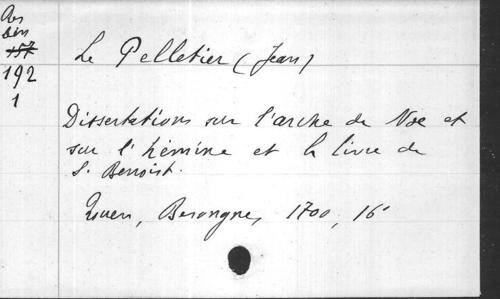 Rés
157
192
1
Le Pelletier (Jean)
Dissertations sur l'arche de Noe et
sur l'hémine et la livre de
S. Benoist.
Rouen, Besongne, 1700, 16°